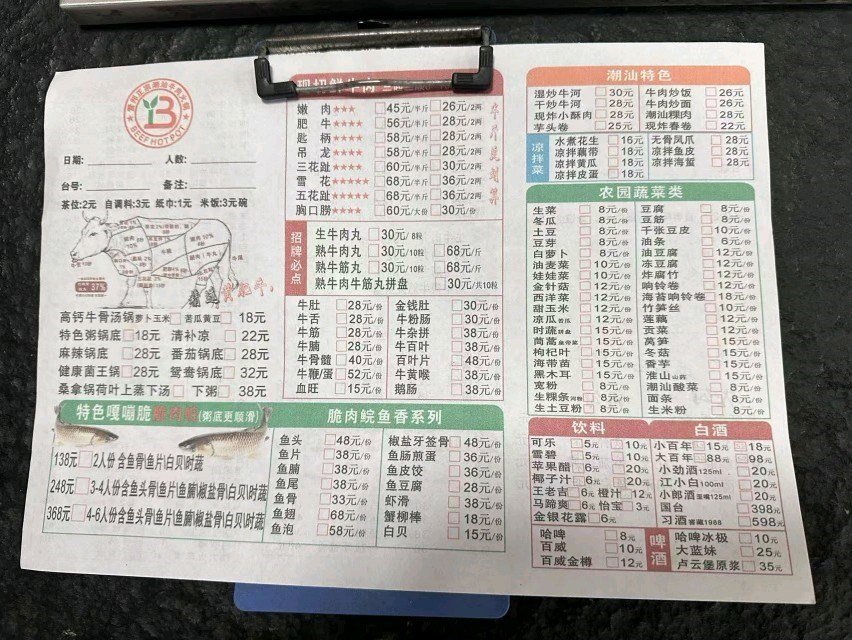 BEEFHOTPOT
日期:
人数:
台号:
备注:
茶位:2元 自调料:3元 纸巾:1元 米饭:3元/碗
37%
高钙牛骨汤锅萝卜玉米 苦瓜黄豆 18元
特色粥锅底 18元 清补凉 22元
麻辣锅底 28元 番茄锅底 28元
健康菌王锅 28元 鸳鸯锅底 32元
桑拿锅荷叶上蒸下汤 下粥 38元
现切鲜牛肉
嫩肉★★★ 45元/半斤 26元/2两
肥牛★★★ 56元/半斤 28元/2两
匙柄★★★★ 58元/半斤 28元/2两
吊龙★★★★ 58元/半斤 28元/2两
三花趾★★★★ 60元/半斤 30元/2两
雪花★★★★★ 68元/半斤 36元/2两
五花趾★★★★★ 68元/半斤 36元/2两
胸口捞★★★★ 60元/大份 30元/份
招牌必点
生牛肉丸 30元/8粒
熟牛肉丸 30元/10粒 68元/斤
熟牛筋丸 30元/10粒 68元/斤
熟牛肉牛筋丸拼盘 30元/共10粒
牛肚 28元/份 金钱肚 30元/份
牛舌 28元/份 牛粉肠 30元/份
牛筋 28元/份 牛杂拼 38元/份
牛腩 28元/份 牛百叶 38元/份
牛骨髓 40元/份 百叶片 48元/份
牛鞭/蛋 52元/份 牛黄喉 38元/份
血旺 15元/份 鹅肠 38元/份
特色嘎嘣脆 (粥底更顺滑)
138元 2人份 含鱼骨\鱼片\白贝\时蔬
248元 3-4人份含鱼头骨\鱼片\鱼腩\椒盐骨\白贝\时蔬
368元 4-6人份含鱼头骨\鱼片\鱼腩\椒盐骨\白贝\时蔬
脆肉鲩鱼香系列
鱼头 48元/份 椒盐牙签骨 48元/份
鱼片 38元/份 鱼肠煎蛋 36元/份
鱼腩 38元/份 鱼皮饺 36元/份
鱼尾 38元/份 鱼豆腐 28元/份
鱼骨 33元/份 虾滑 38元/份
鱼翅 68元/份 蟹柳棒 18元/份
鱼泡 58元/份 白贝 15元/份
潮汕特色
湿炒牛河 30元 牛肉炒饭 26元
干炒牛河 28元 牛肉炒面 26元
现炸小酥肉 28元 潮汕粿肉 28元
芋头卷 25元 现炸春卷 22元
凉拌菜
水煮花生 16元 无骨凤爪 28元
凉拌藕带 18元 凉拌鱼皮 28元
凉拌黄瓜 18元 凉拌海蜇 28元
凉拌皮蛋 18元
农园蔬菜类
生菜 8元/份 豆腐 8元/份
冬瓜 8元/份 豆筋 8元/份
土豆 8元/份 千张豆皮 10元/份
豆芽 8元/份 油条 6元/份
白萝卜 8元/份 油豆腐 12元/份
油麦菜 10元/份 冻豆腐 12元/份
娃娃菜 10元/份 炸腐竹 12元/份
金针菇 12元/份 响铃卷 12元/份
西洋菜 12元/份 海苔响铃卷 18元/份
甜玉米 12元/份 竹笋丝 10元/份
凉瓜 12元/份 莲藕 12元/份
时蔬拼盘 15元/份 贡菜 12元/份
茼蒿皇帝菜 15元/份 莴笋 15元/份
枸杞叶 15元/份 冬菇 15元/份
海带苗 15元/份 香芋 15元/份
黑木耳 15元/份 淮山 15元/份
宽粉 8元/份 潮汕酸菜 8元/份
生粿条 8元/份 面条 8元/份
生土豆粉 8元/份 生米粉 8元/份
饮料
可乐 5元 10元
雪碧 5元 10元
苹果醋 6元 20元
椰子汁 6元 20元
王老吉 6元 橙汁 12元
马蹄爽 6元 怡宝 3元
金银花露 6元
白酒
小百年 15元 18元
大百年 88元 98元
小劲酒125ml 20元
江小白100ml 20元
小郎酒125ml 20元
国台 398元
习酒窖藏1988 598元
啤酒
哈啤 8元 哈啤冰极 10元
百威 10元 大蓝妹 25元
百威金樽 12元 卢云堡原浆 35元